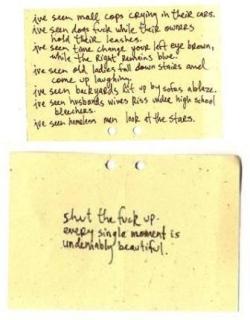 ive seen mall cops crying in their cars.
ive seen dogs fuck while their owners
hold their leashes.
ive seen time change your left eye brown,
while the right remains blue.
ive seen old ladies fall down stairs and
come up laughing.
ive seen backyards lit up by sofas ablaze.
ive seen husbands wives kiss under high school
bleechers.
ive seen homeless men look at the stars.
shut the fuck up.
every single moment is
undeniably beautiful.